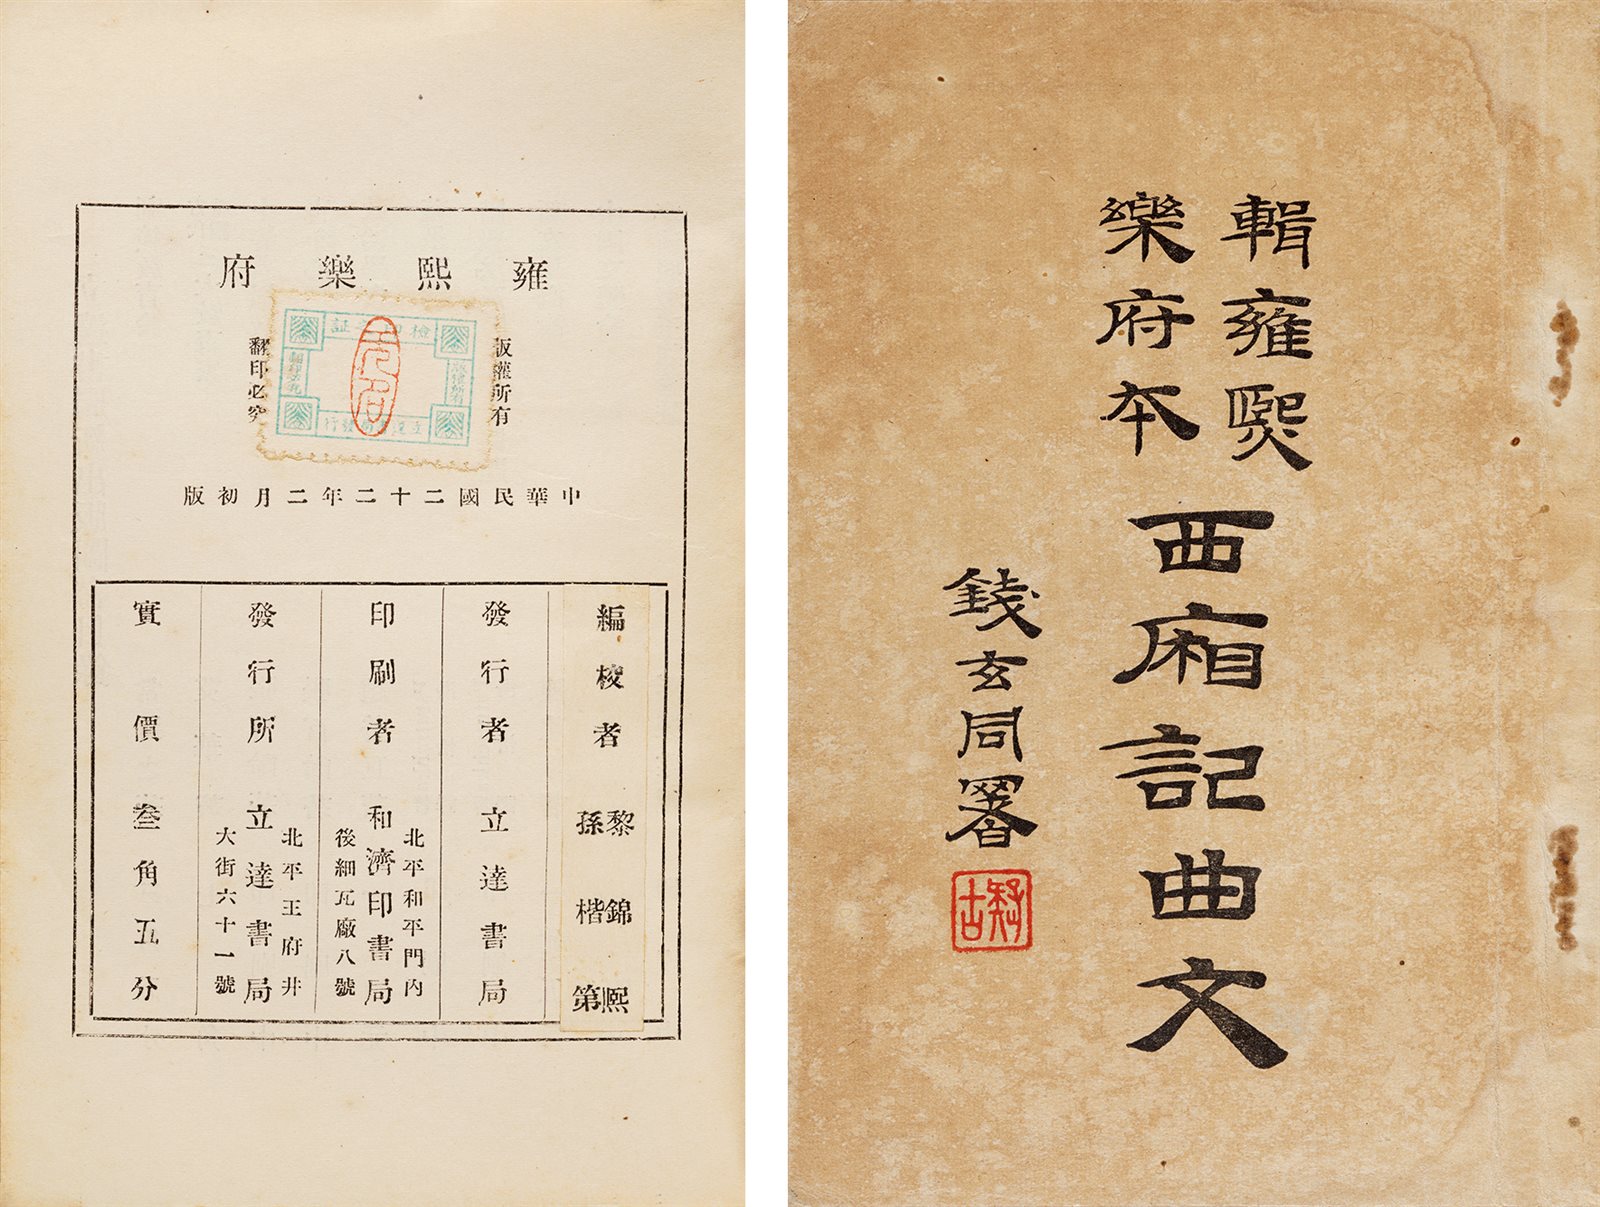 輯雍熙
樂府本
西廂記曲文
錢玄同署
雍熙樂府
版權所有
翻印必究
檢印証
中華民國二十二年二月初版
編校者
黎錦熙
孫楷第
發行者
立達書局
印刷者
北平和平門內
和濟印書局
後細瓦廠八號
發行所
北平王府井
立達書局
大街六十一號
實價叁角五分